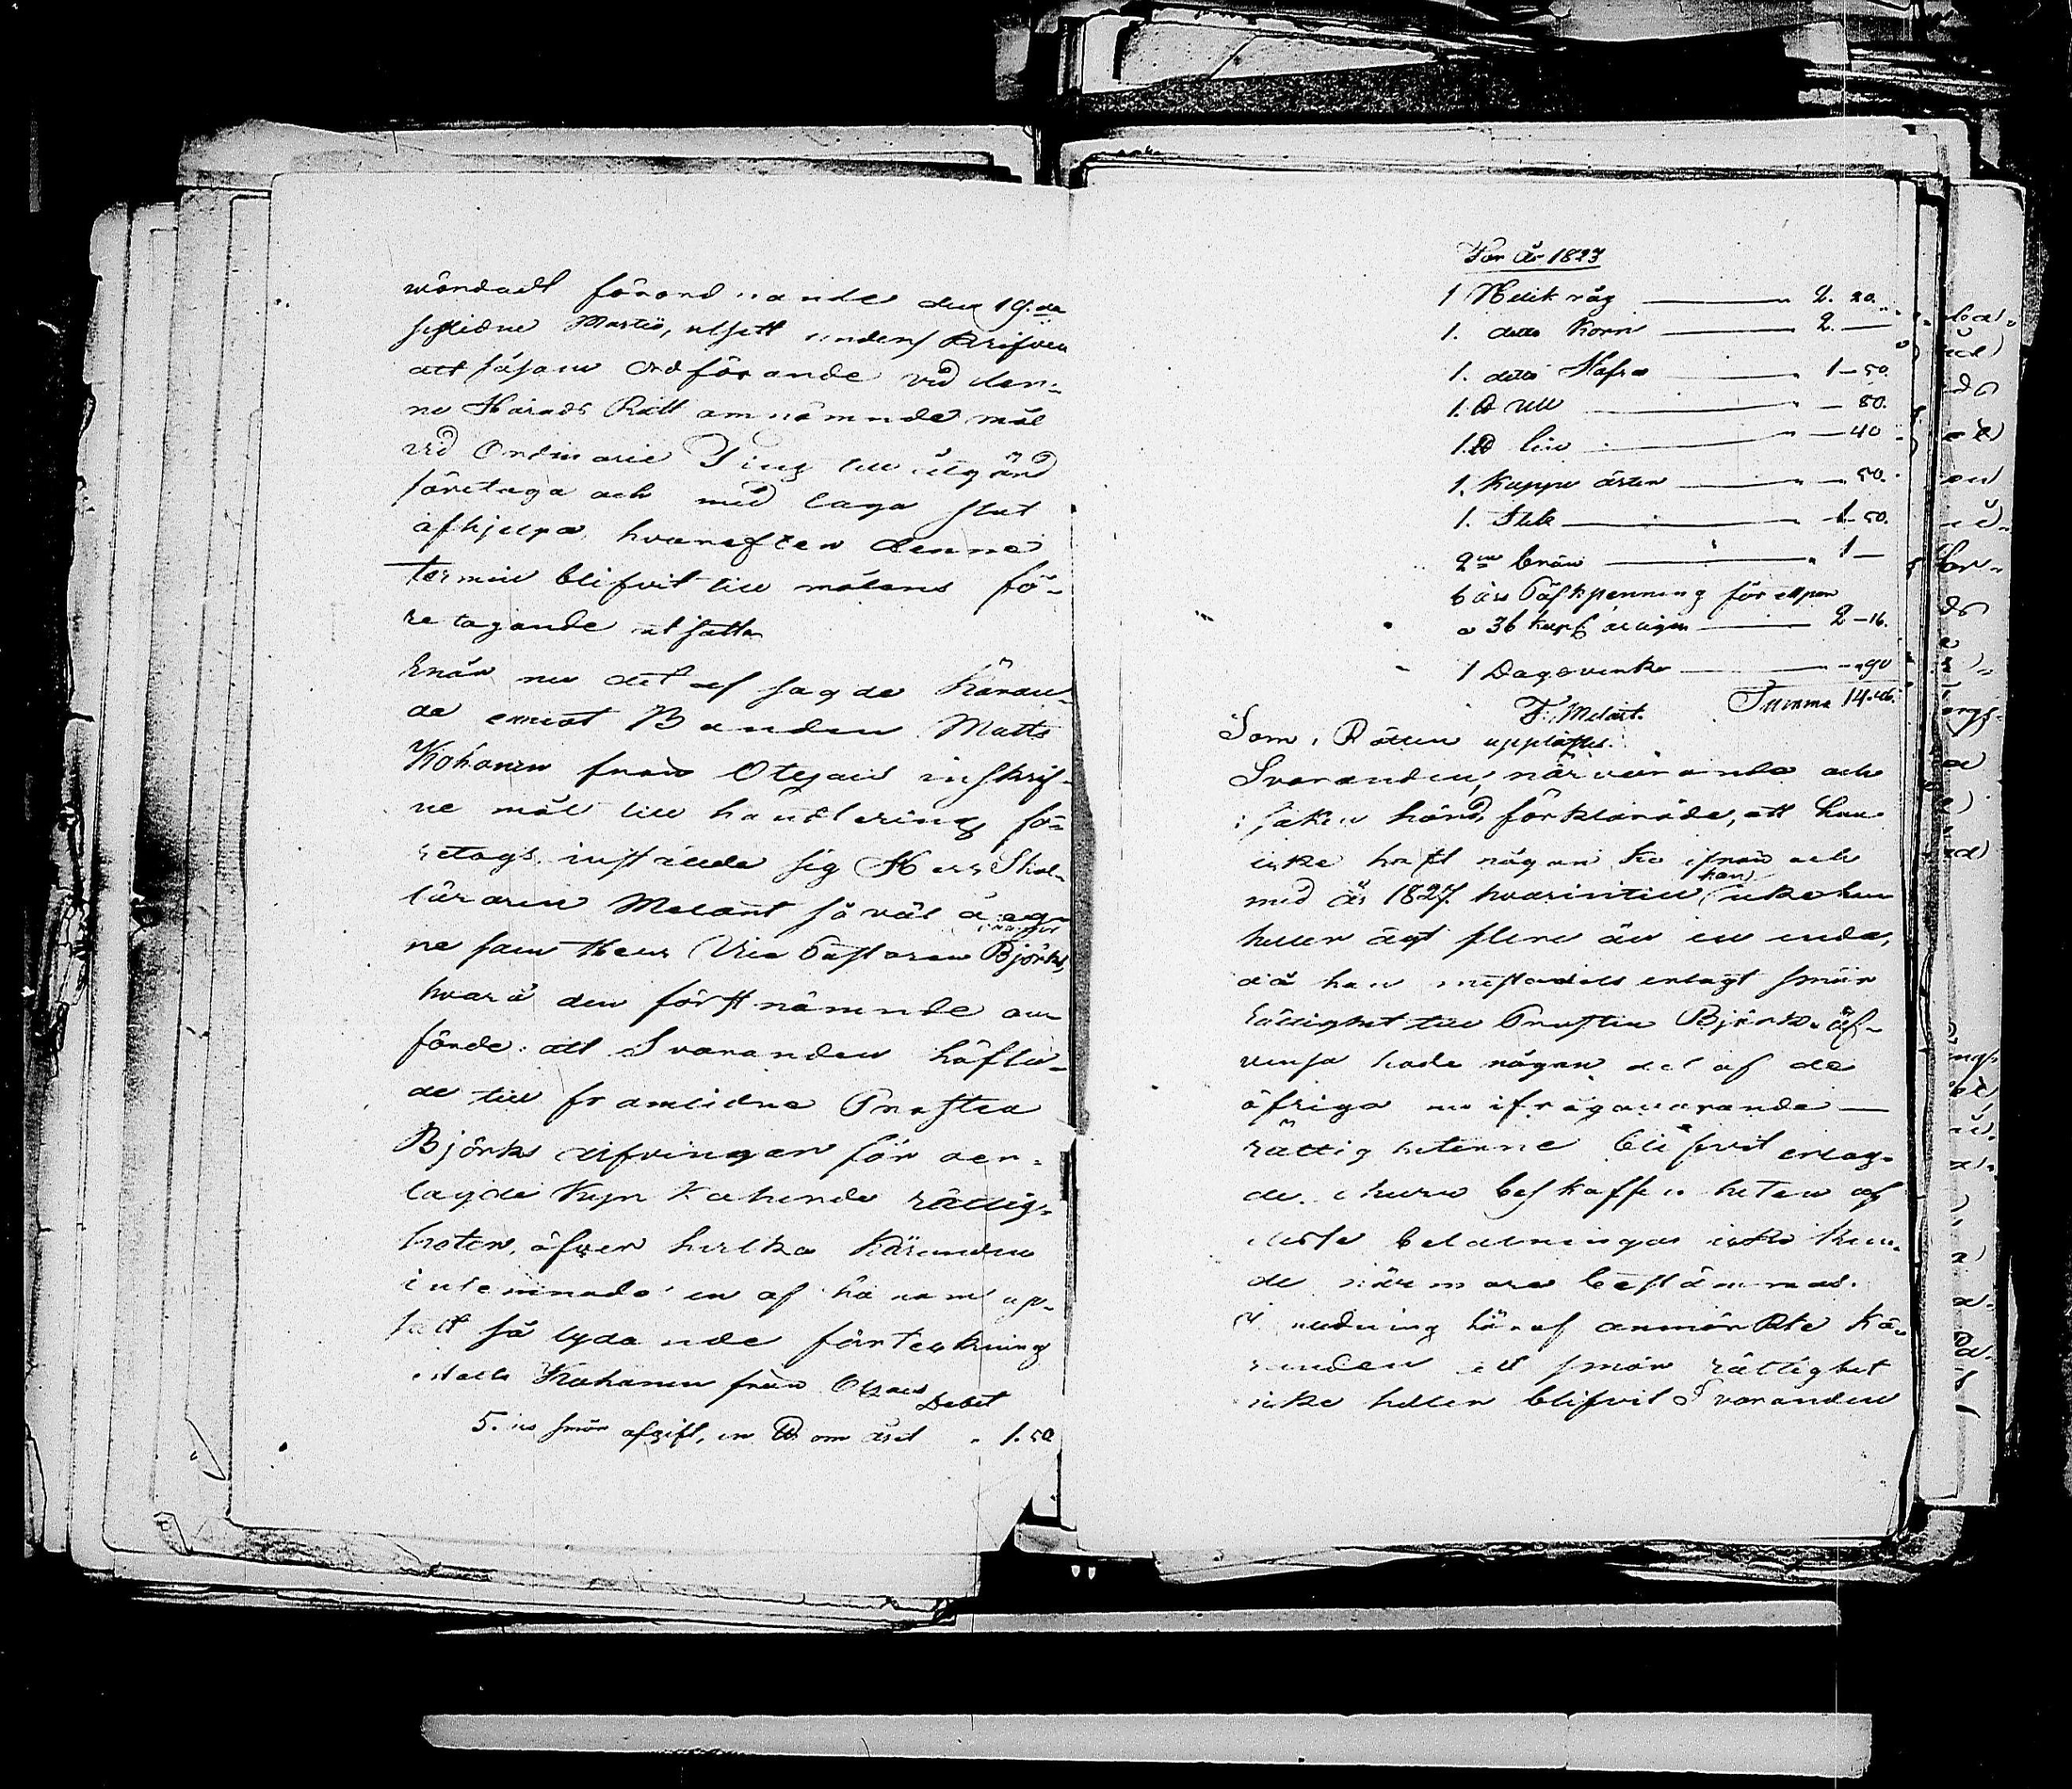 wördadt förordnande den 19.de
sistlidne Martii, utsett underskrifven
att såsom Ordförande vid den-
ne Härads Rätt omnämnde mål
vid Ordinarie Ting till åtgärd
företaga och med laga slut
afhjelpa, hvarefter denne
termin blifvit till målens fö-
retagande utsatt.
Enär nu det af sagde Käran-
de emot Bonden Matts
Kohonen från Otsjois inskrif-
ne mål till handtering fö-
retogs, instälde sig Herr Skol-
läraren Melart så väl å eg-
ne som Herr Vice Pastoren Björks,
hvarå den förstnämnde an-
förde: att Svaranden häfta-
de till framlidne Prosten
Björks arfvingar för oer-
lagde Kyrkoherde rättig-
heter, öfver hvilka Käranden
inlemnade en af honom up-
satt så lydande förteckning
Matts Kohonen från Otsjois
Debet
5. års smör afgift, en ℔ om året " 1. 50
För År 1823
1 Helik råg " 2. 20.
1. detto Korn " 2. —
1. detto Hafra " 1 — 50.
1. ℔ Ull " — 80.
1. ℔ Lin " — 40
1. Kappe ärter " — 50.
1. Stek " 1 — 50.
2ne " 1 —
6 års Påskpenning för
a 36 kop årligen 2 — 16.
1 Dagsverke — 90
F. Melart. Summa 14.46.
Som i Rätten upplästes.
Svaranden, närvarande och
i saken hörd, förklarade, att han
icke haft någon ko ifrån och
med år 1827. hvarintill han icke
heller ägt flere än en enda,
då han mestadels erlagt smör
rättighet till Prosten Björk. äf-
vensa hade någon del af de
öfriga nu ifrågavarande —
rättigheterne blifvit erlag-
de, ehuru beskaffenheten af
desse betalningar icke kun-
de närmare bestämmas.
I anledning häraf anmärkte Kä-
randen att smör rättighet
icke heller blifvit Svaranden